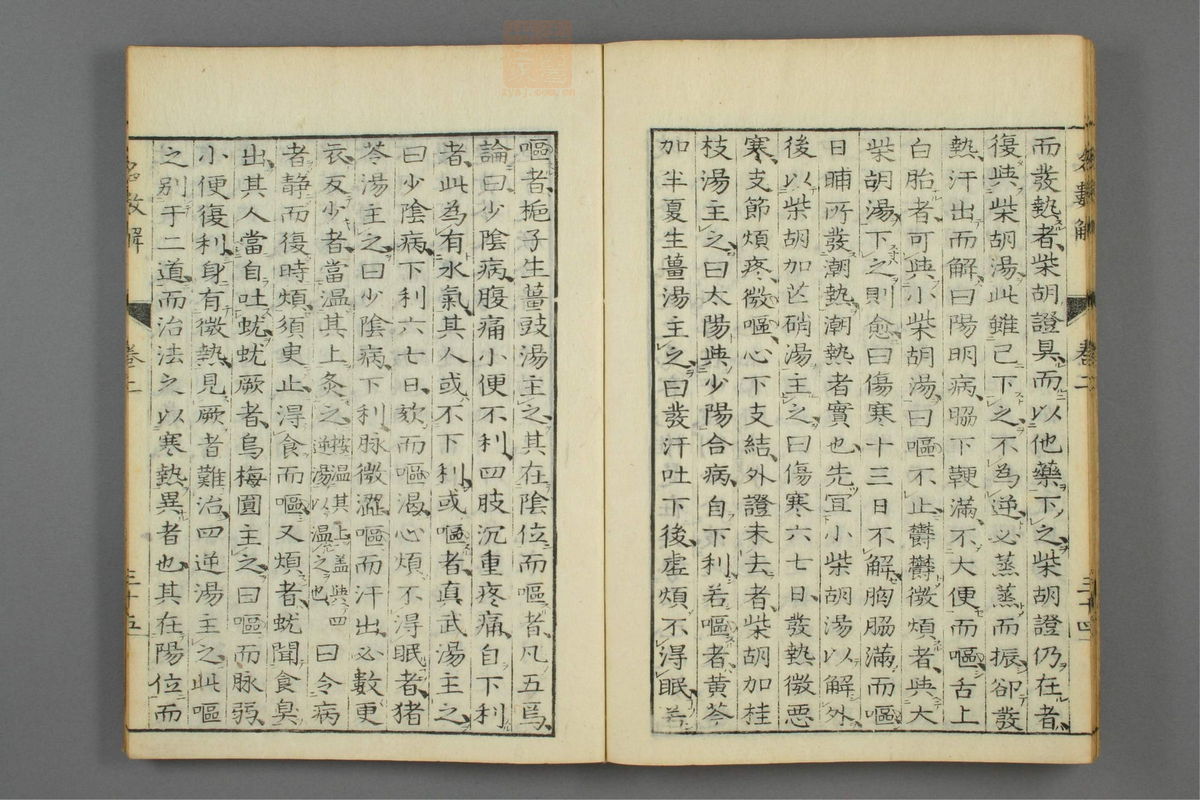 而發熱者柴胡證具而以他藥下之柴胡證仍在者
復與柴胡湯此雖已下之不為逆必蒸蒸而振卻發
熱汗出而解曰陽明病脇下鞕滿不大便而嘔舌上
白胎者可與小柴胡湯曰嘔不止鬱鬱微煩者與大
柴胡湯下之則愈曰傷寒十三日不解胸脇滿而嘔
日晡所發潮熱潮熱者實也先宜小柴胡湯以解外
後以柴胡加芒硝湯主之曰傷寒六七日發熱微惡
寒支節煩疼微嘔心下支結外證未去者柴胡加桂
枝湯主之曰太陽與少陽合病自下利若嘔者黃芩
加半夏生薑湯主之曰發汗吐下後虛煩不得眠若
卷二
三十四
嘔者梔子生薑豉湯主之其在陰位而嘔者凡五焉
論曰少陰病腹痛小便不利四肢沉重疼痛自下利
者此為有水氣其人或不下利或嘔者真武湯主之
曰少陰病下利六七日欬而嘔渴心煩不得眠者猪
苓湯主之曰少陰病下利脉微澀嘔而汗出必數更
衣反少者當温其上灸之按温其上蓋與四逆湯以温之也曰令病
者静而復時煩須臾止得食而嘔又煩者蚘聞食臭
出其人當自吐蚘蚘厥者烏梅圓主之曰嘔而脉弱
小便復利身有微熱見厥者難治四逆湯主之此嘔
之别于二道而治法之以寒熱異者也其在陽位而
卷二
三十五